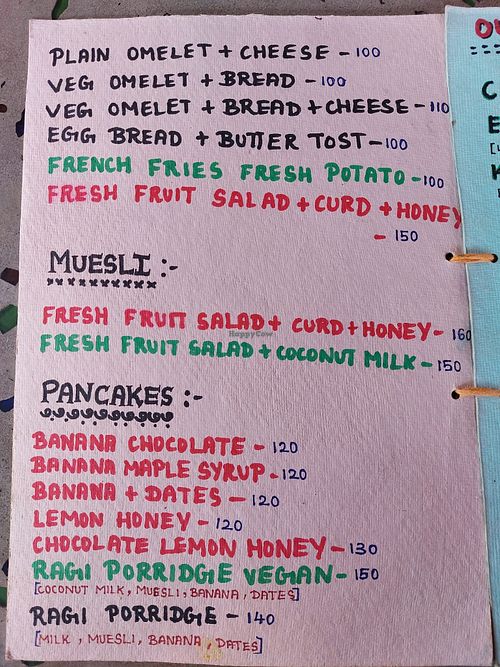 PLAIN OMELET + CHEESE - 100
VEG OMELET + BREAD - 100
VEG OMELET + BREAD + CHEESE - 110
EGG BREAD + BUTTER TOST - 100
FRENCH FRIES FRESH POTATO - 100
FRESH FRUIT SALAD + CURD + HONEY
- 150
MUESLI :-
FRESH FRUIT SALAD + CURD + HONEY - 160
FRESH FRUIT SALAD + COCONUT MILK - 150
HappyCow
PANCAKES :-
BANANA CHOCOLATE - 120
BANANA MAPLE SYRUP - 120
BANANA + DATES - 120
LEMON HONEY - 120
CHOCOLATE LEMON HONEY - 130
RAGI PORRIDGIE VEGAN - 150
[COCONUT MILK, MUESLI, BANANA, DATES]
RAGI PORRIDGIE - 140
[MILK, MUESLI, BANANA, DATES]